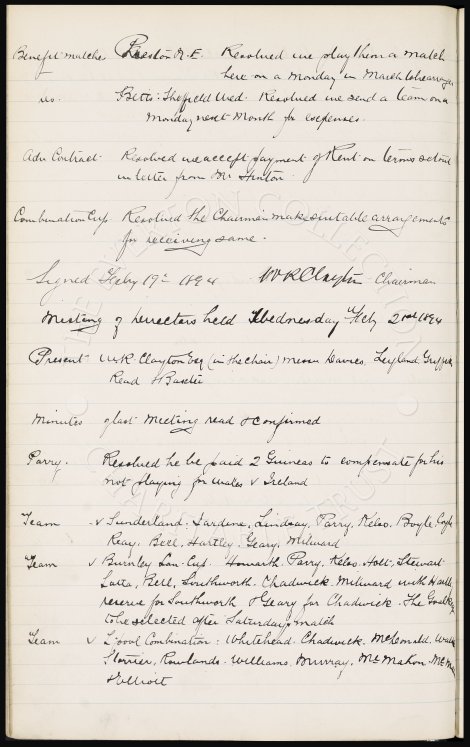 Benefit matches Preston N.E. Resolved we play them a match
here on a Monday in March to be arranged
do. Betts: Sheffield Wed. Resolved we send a team on a
Monday next Month for expenses.
Adv Contract Resolved we accept payment of Rent on terms set out
in letter from Mr Hinton
Combination Cup Resolved the Chairman make suitable arrangements
for receiving same.
Signed Feby 19th 1894 W R Clayton Chairman
Meeting of Directors held Wednesday Feb 1894
Present W R Clayton Esq (in the chair) Messrs Davies, Leyland, Griffiths
Read & Baxter
Minutes of last Meeting read & confirmed
Parry. Resolved he be paid 2 Guineas to compensate for his
not playing for Wales v Ireland
Team v Sunderland: Jardine, Lindsay, Parry, Kelso, Boyle, Coyle
Reay, Bell, Hartley, Geary, Milward
Team v Burnley Lan Cup. Howarth, Parry, Kelso, Holt, Stewart
Latta, Bell, Southworth, Chadwick, Milward with Hartley
reserve for Southworth & Geary for Chadwick. The Goalkeeper
to be selected after Saturdays match
Team v L'pool Combination: Whitehead, Chadwick, McDonald, Walker
Storrier, Rowlands, Williams, Murray, McMahon,
Elliott
THE EVERTON COLLECTION
CHARITABLE TRUST